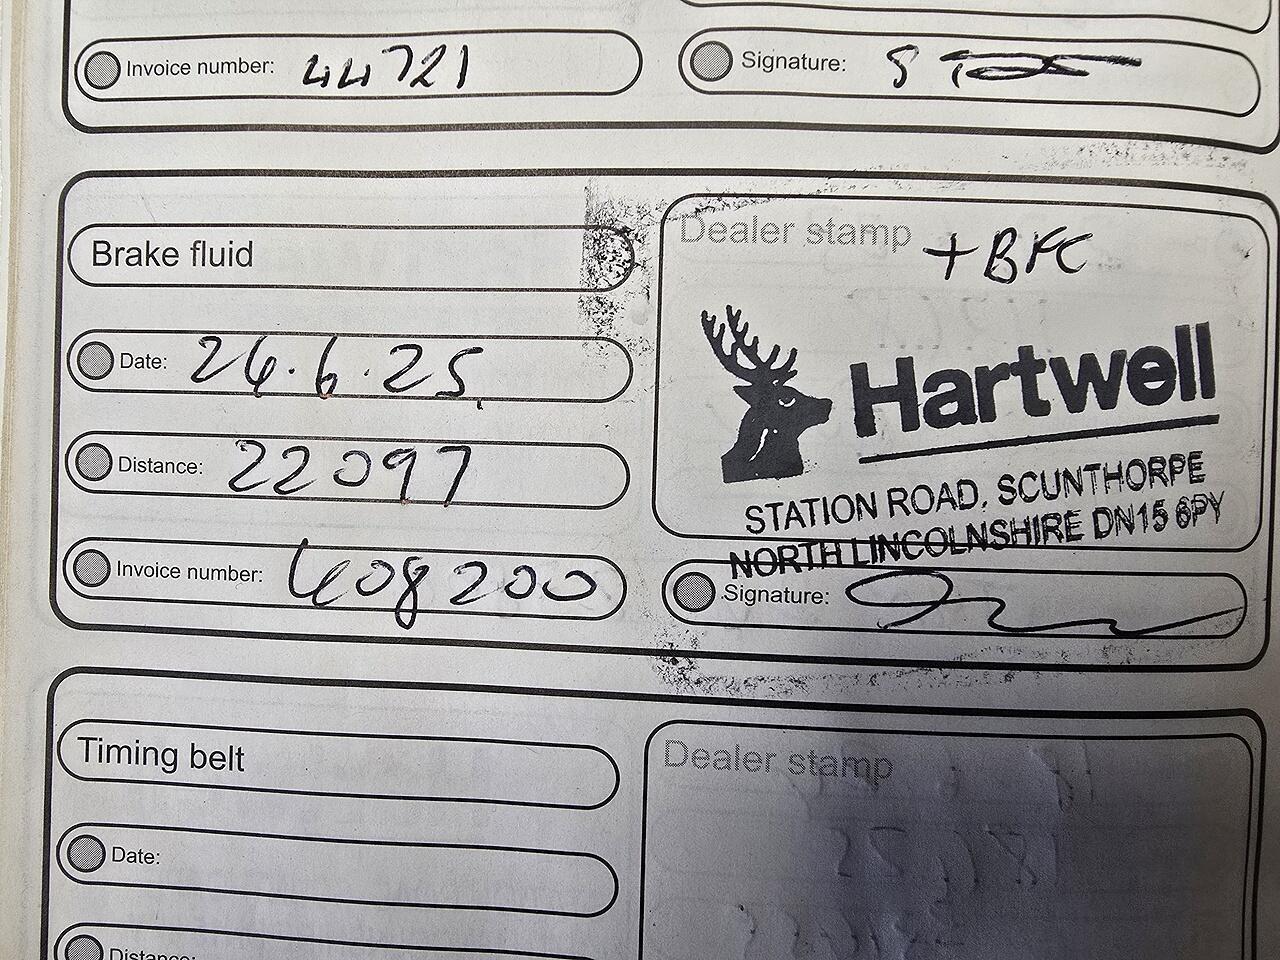 Invoice number: 44721
Signature:
Brake fluid
Date: 26.6.25
Distance: 22097
Invoice number: 608200
Dealer stamp + BFC
Hartwell
STATION ROAD, SCUNTHORPE
NORTH LINCOLNSHIRE DN15 6PY
Signature:
Timing belt
Date:
Distance:
Dealer stamp